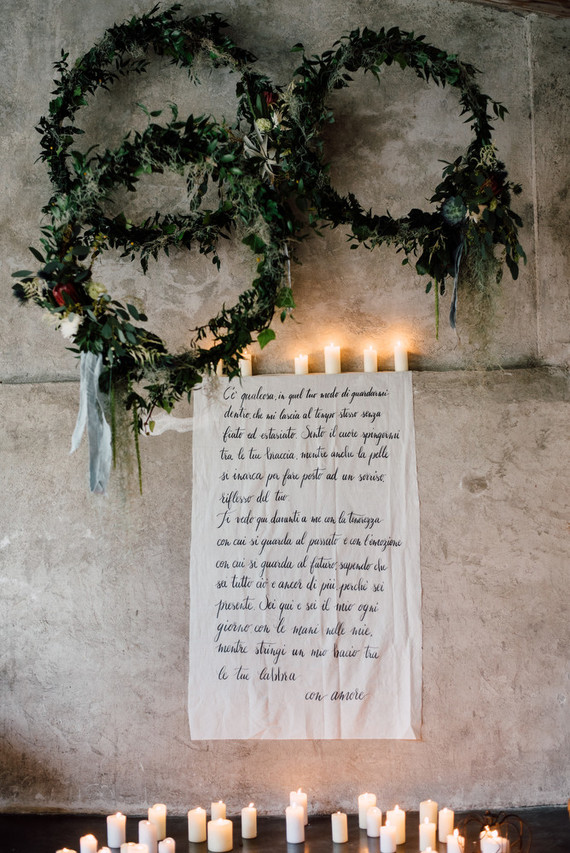 C'è qualcosa, in quel tuo modo di guardarmi
dentro, che mi lascia al tempo stesso senza
fiato ed estasiato. Sento il cuore spingermi
tra le tue braccia, mentre anche la pelle
si inarca per fare posto ad un sorriso,
riflesso del tuo.
Ti vedo qui davanti a me con la tenerezza
con cui si guarda al passato e con l'emozione
con cui si guarda al futuro, sapendo che
sei tutto ciò e ancor di più, perché sei
presente. Sei qui e sei il mio ogni
giorno con le mani nelle mie,
mentre stringi un mio bacio tra
le tue labbra
con amore